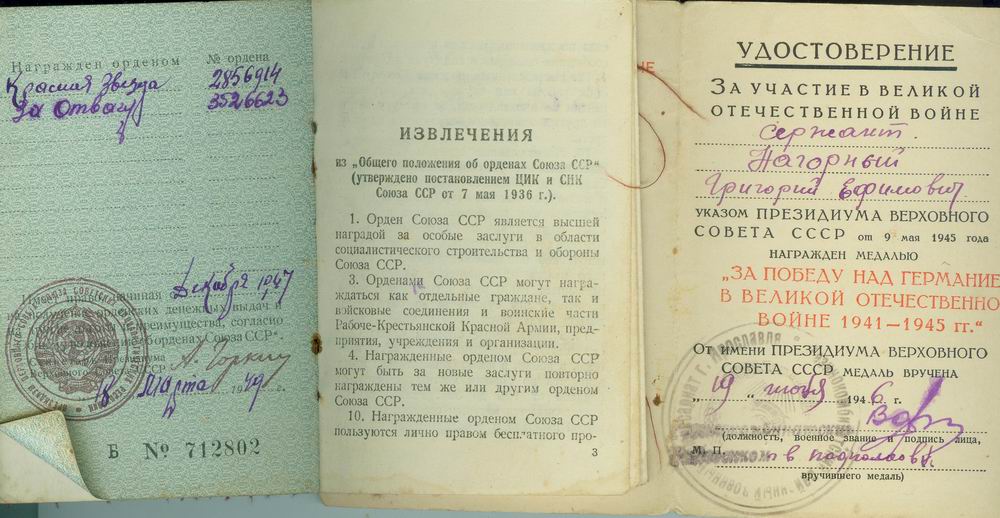 Награжден орденом
№ ордена
Красная Звезда 2856914
За Отвагу 3526623
Декабря 1947
денежных выдач и
преимущества, согласно
орденах Союза ССР".
Президиума
Верховного Совета СССР А. Горкин
18 Марта 1949 г.
Б № 712802
ИЗВЛЕЧЕНИЯ
из „Общего положения об орденах Союза ССР"
(утверждено постановлением ЦИК и СНК
Союза ССР от 7 мая 1936 г.).
1. Орден Союза ССР является высшей
наградой за особые заслуги в области
социалистического строительства и обороны
Союза ССР.
3. Орденами Союза ССР могут награ-
ждаться как отдельные граждане, так и
войсковые соединения и воинские части
Рабоче-Крестьянской Красной Армии, пред-
приятия, учреждения и организации.
4. Награжденные орденом Союза ССР
могут быть за новые заслуги повторно
награждены тем же или другим орденом
Союза ССР.
10. Награжденные орденом Союза ССР
пользуются лично правом бесплатного про-
3
УДОСТОВЕРЕНИЕ
ЗА УЧАСТИЕ В ВЕЛИКОЙ
ОТЕЧЕСТВЕННОЙ ВОЙНЕ
сержант.
Нагорный
Григорий Ефимович
УКАЗОМ ПРЕЗИДИУМА ВЕРХОВНОГО
СОВЕТА СССР от 9 мая 1945 года
НАГРАЖДЕН МЕДАЛЬЮ
„ЗА ПОБЕДУ НАД ГЕРМАНИЕ
В ВЕЛИКОЙ ОТЕЧЕСТВЕННО
ВОЙНЕ 1941—1945 гг."
ОТ ИМЕНИ ПРЕЗИДИУМА ВЕРХОВНОГО
СОВЕТА СССР МЕДАЛЬ ВРУЧЕНА
„19" июня 1946 г.
(должность, военное звание и подпись лица,
М. П.
вручившего медаль)